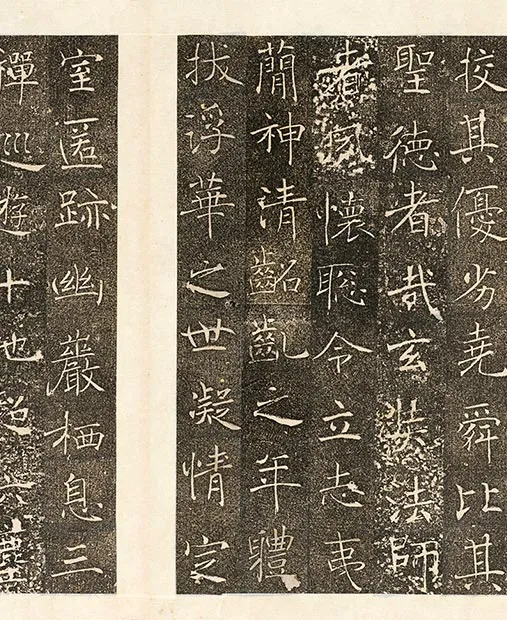 挍其優劣堯舜比其
聖德者哉玄奘法師
者夙懷聰令立志夷
簡神清齠齔之年體
拔浮華之世凝情定
室匿跡幽巖栖息三
禪巡遊十地超六塵